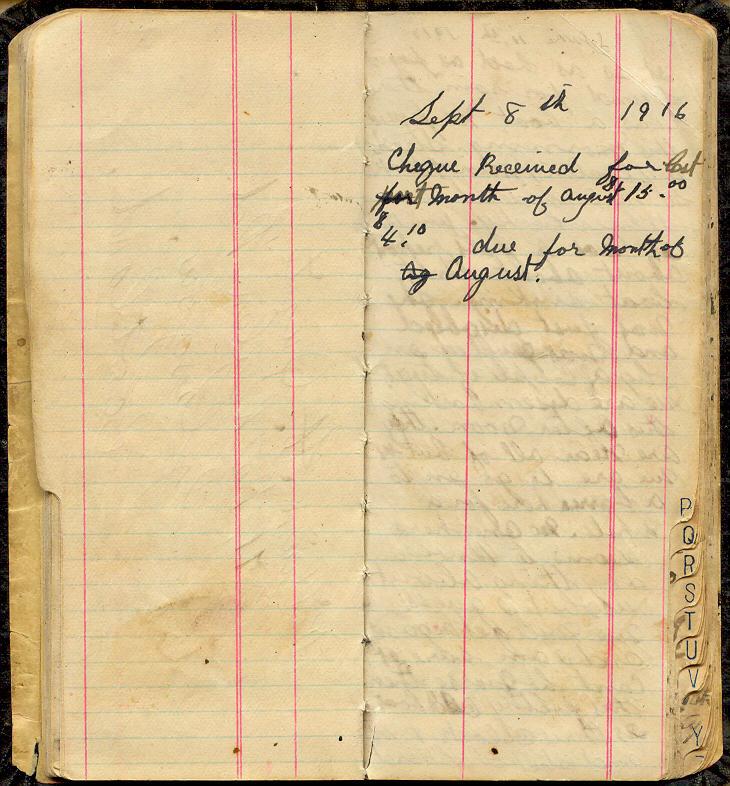 Sept 8th 1916
Cheque Received for last
Month of August $15.00
$4.10 due for Month of
August.
P
Q
R
S
T
U
V
Y